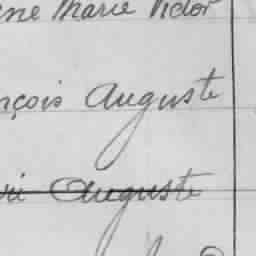 ne Marie Victor
nçois Auguste
ri Auguste